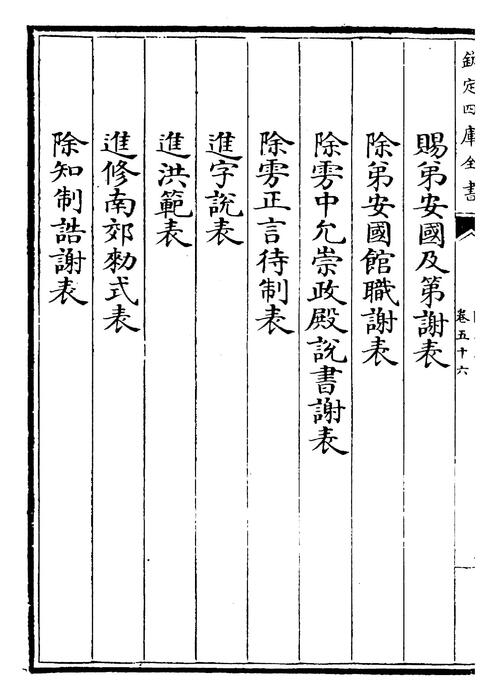 欽定四庫全書
卷五十六
賜弟安國及第謝表
除弟安國館職謝表
除雱中允崇政殿說書謝表
除雱正言待制表
進字說表
進洪範表
進修南郊勑式表
除知制誥謝表